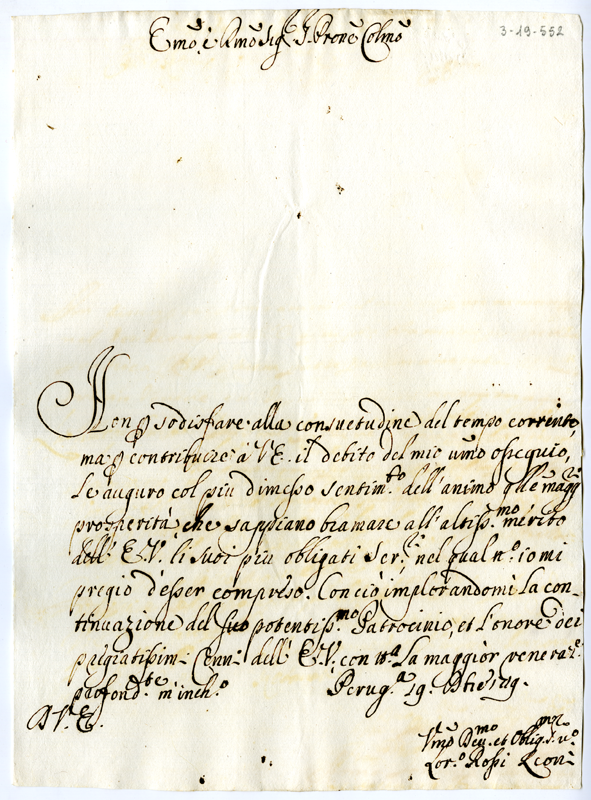 3-19-552
Emo, e Rmo Sig.r P.rone Colmo
Non p sodisfare alla consuetudine del tempo corrente,
ma p contribuire à V.E. il debito del mio umo ossequio,
Le auguro col piu dimesso sentim.to dell'animo q.lle magg.ri
prosperità, che sappiano bramare all'altiss.mo merito
dell' E.V. li suoi piu obligati ser.ri nel qual n.o io mi
pregio d'esser compreso. Con ciò implorandomi La con-
tinuazione del suo potentiss.mo Patrocinio, et L'onore dei
pregiatissim: Cenni dell' E.V. con tt.a La maggior veneraz.e
profond.te m'inch.o Perug.a 19. Xbre 1719.
D. V.E.
Vmo Deu.mo et Oblig.mo S.re
Lor.o Rossi